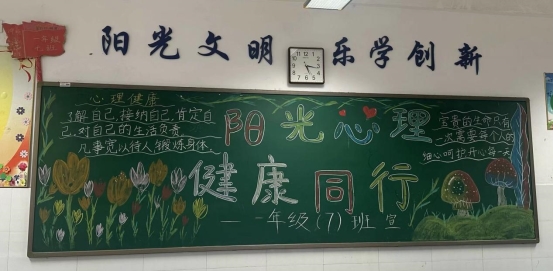 阳光文明 乐学创新
心理健康
了解自己,接纳自己,肯定自
己,对自己的生活负责,
凡事宽以待人,锻炼身体。
阳光心理
健康同行
——一年级(7)班 宣
宝贵的生命只有
一次需要每个人的
细心呵护开心每一天